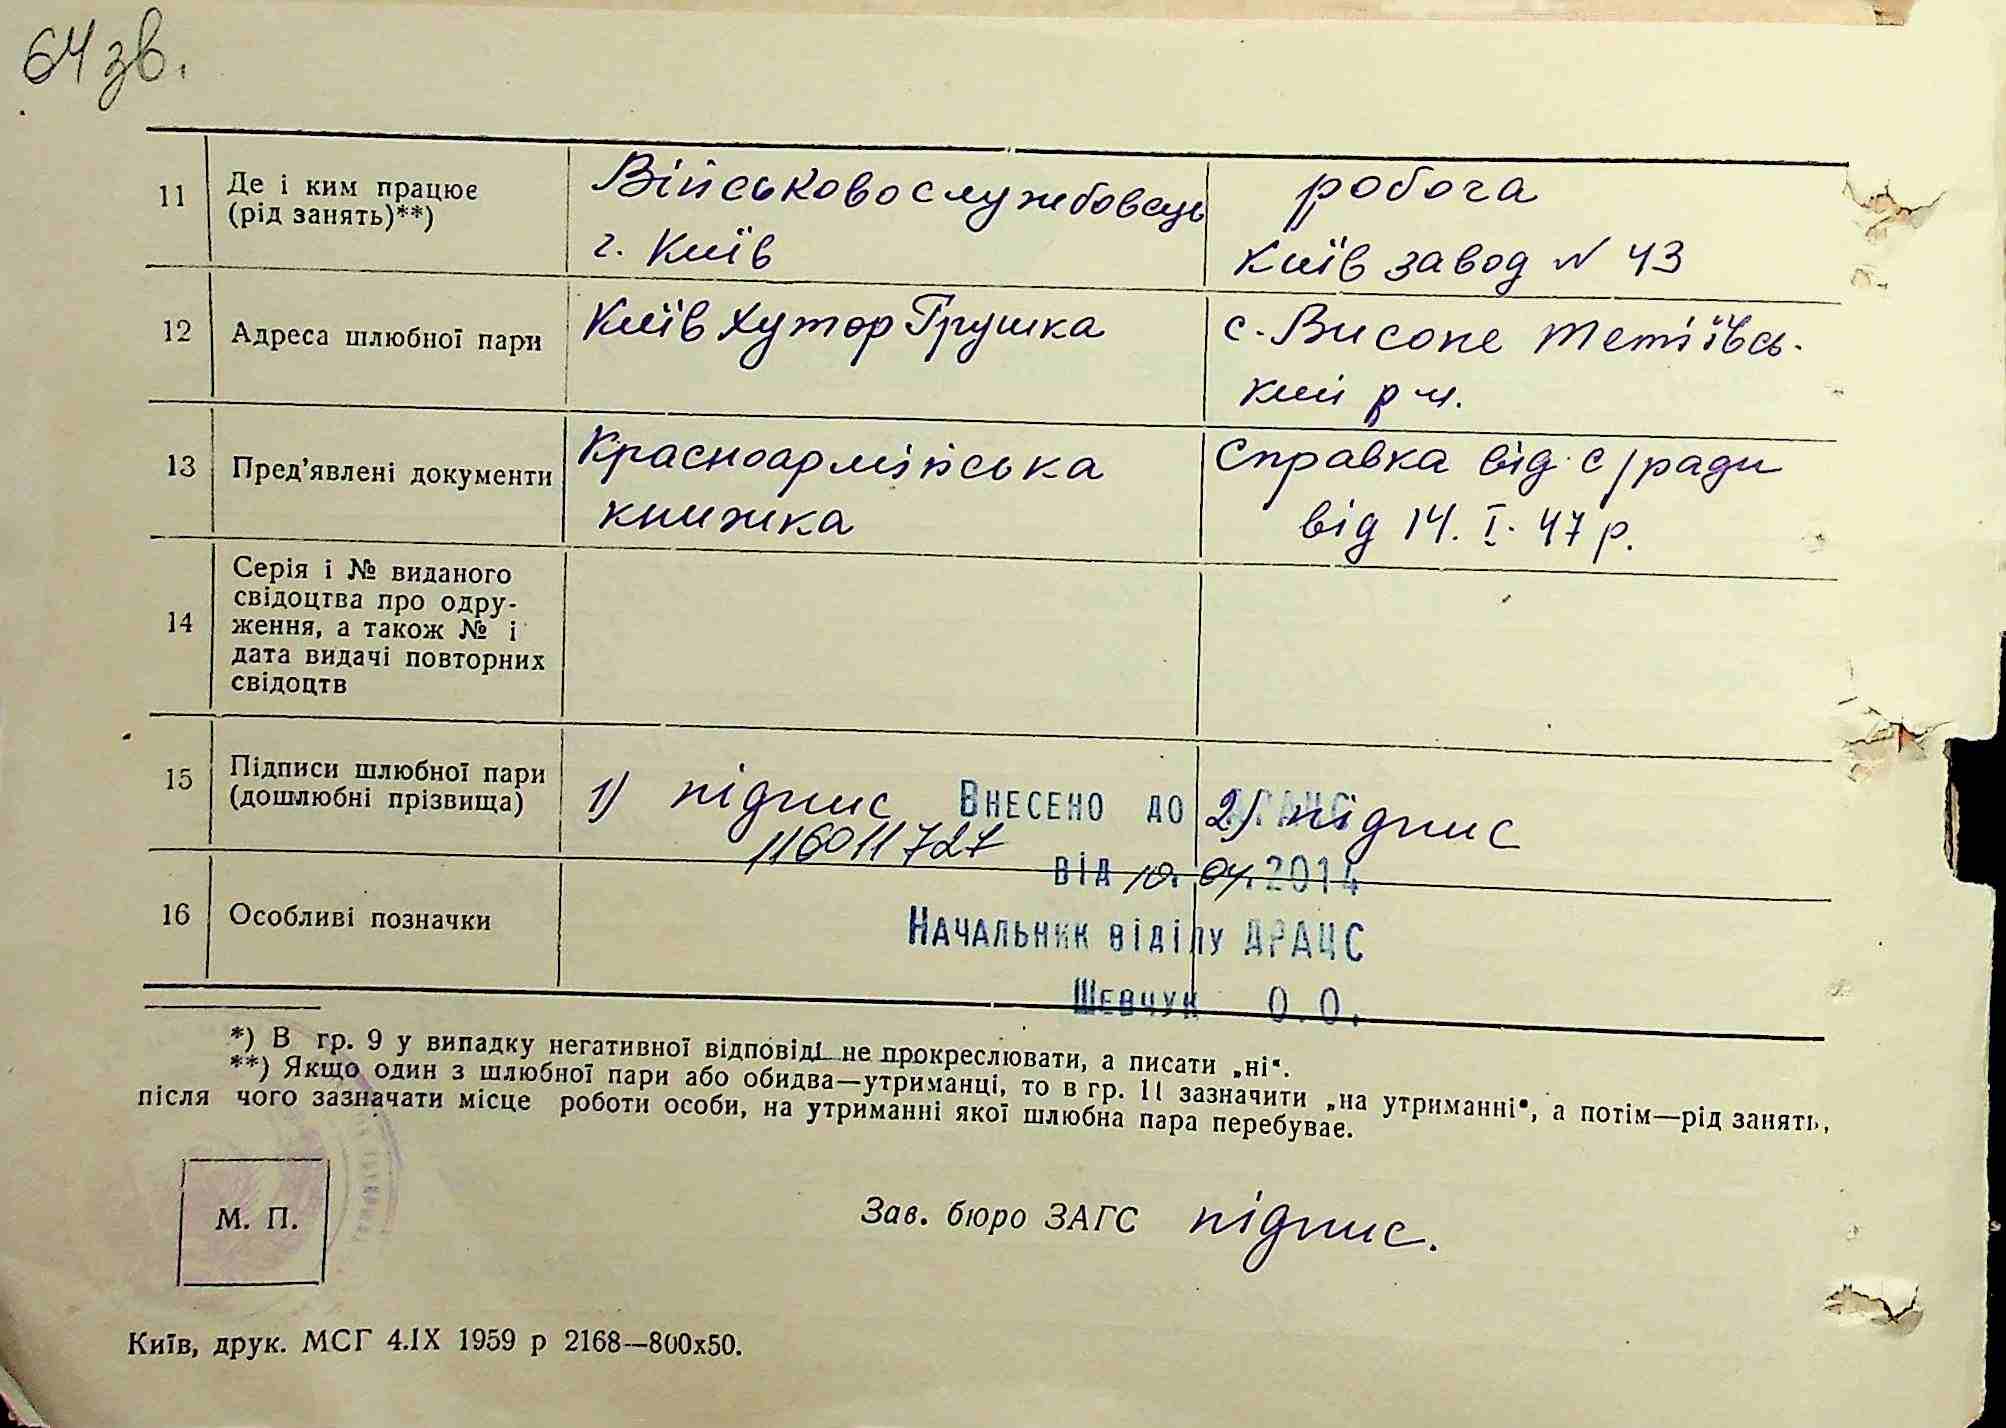 64 зв.
11
Де і ким працює
(рід занять)**)
Військовослужбовець
г. Київ
робоча
Київ завод N 43
12
Адреса шлюбної пари
Київ Хутор Грушка
с. Високе Тетіївсь-
кий рн.
13
Пред’явлені документи
Красноармійська
книжка
Справка від с/ради
від 14. I. 47 р.
14
Серія і № виданого
свідоцтва про одру-
ження, а також № і
дата видачі повторних
свідоцтв
15
Підписи шлюбної пари
(дошлюбні прізвища)
1) підпис
2) підпис
Внесено до ДРАЦС
116011727
від 10.04.2014
16
Особливі позначки
Начальник відділу ДРАЦС
Шевчук О.О.
*) В гр. 9 у випадку негативної відповіді не прокреслювати, а писати „ні“.
**) Якщо один з шлюбної пари або обидва—утриманці, то в гр. 11 зазначити „на утриманні“, а потім—рід занять,
після чого зазначати місце роботи особи, на утриманні якої шлюбна пара перебуває.
М. П.
Зав. бюро ЗАГС підпис.
Київ, друк. МСГ 4.IX 1959 р 2168—800х50.